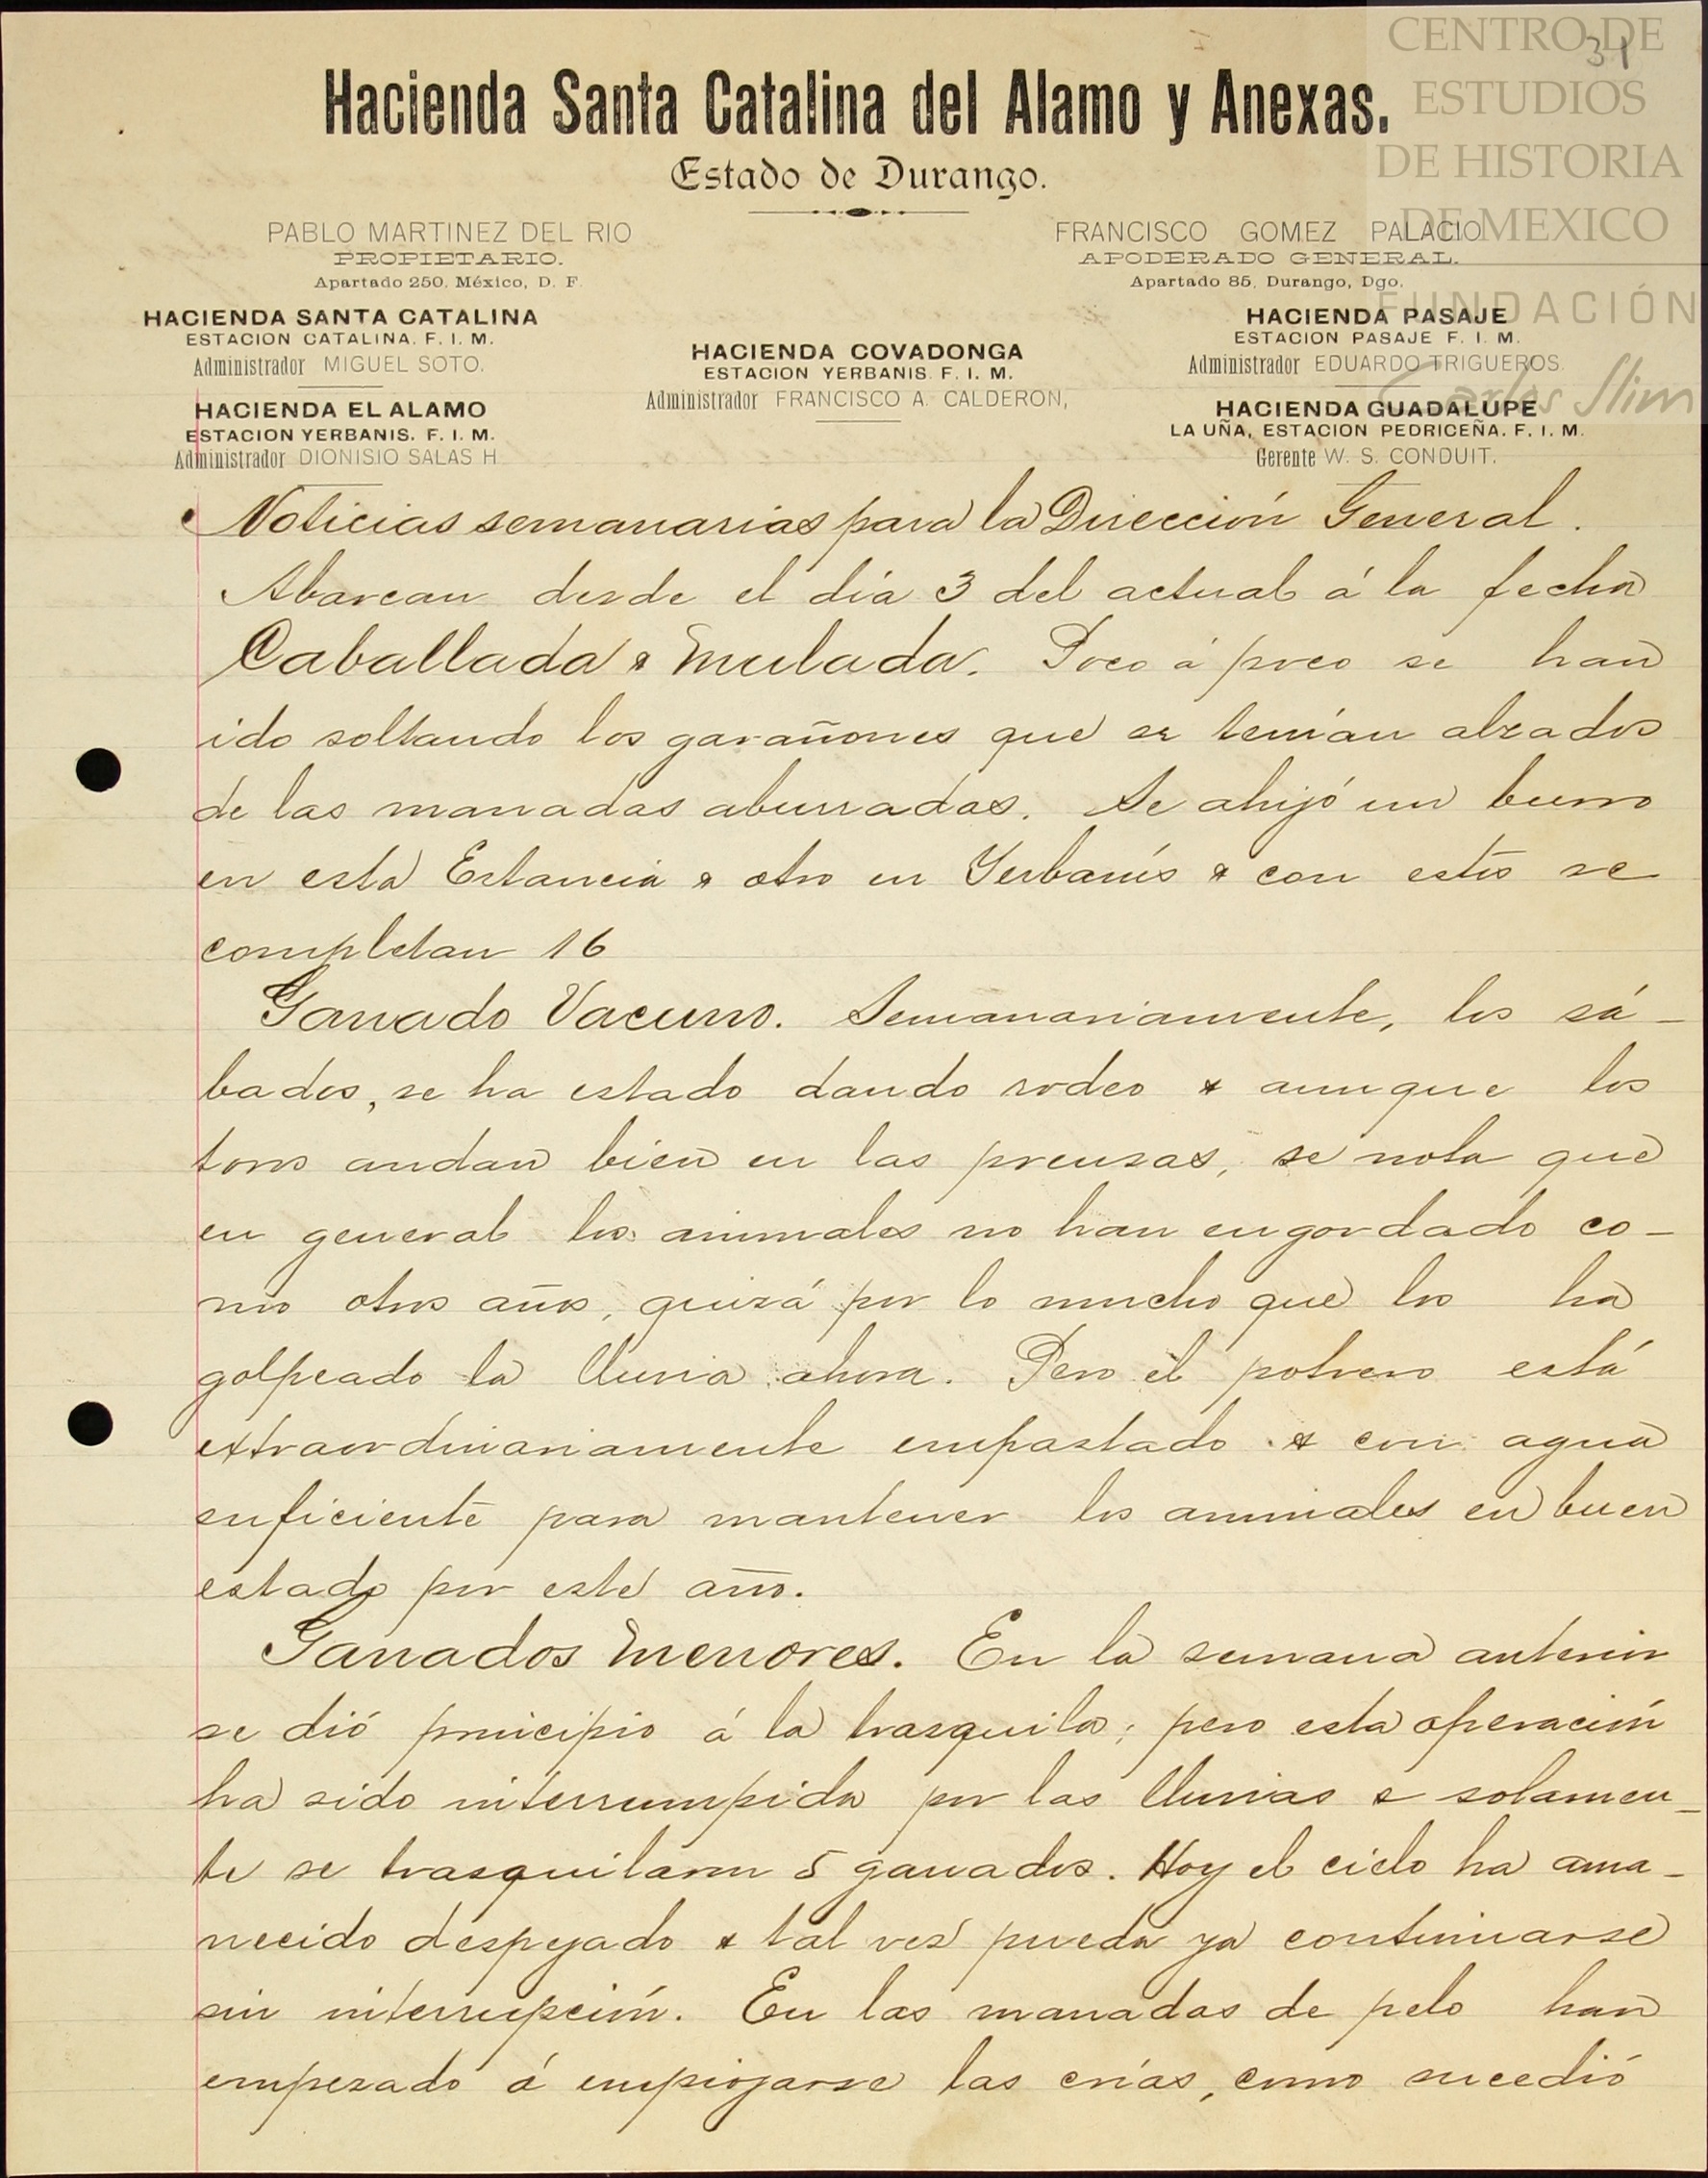 CENTRO DE
ESTUDIOS
DE HISTORIA
DE MEXICO
FUNDACIÓN
Carlos Slim
31
Hacienda Santa Catalina del Alamo y Anexas.
Estado de Durango.
PABLO MARTINEZ DEL RIO
PROPIETARIO.
Apartado 250. México, D. F.
FRANCISCO GOMEZ PALACIO
APODERADO GENERAL.
Apartado 85, Durango, Dgo.
HACIENDA SANTA CATALINA
ESTACION CATALINA. F. I. M.
Administrador MIGUEL SOTO.
HACIENDA EL ALAMO
ESTACION YERBANIS. F. I. M.
Administrador DIONISIO SALAS H
HACIENDA COVADONGA
ESTACION YERBANIS. F. I. M.
Administrador FRANCISCO A. CALDERON,
HACIENDA PASAJE
ESTACION PASAJE F. I. M.
Administrador EDUARDO TRIGUEROS.
HACIENDA GUADALUPE
LA UÑA, ESTACION PEDRICEÑA. F. I. M.
Gerente W. S. CONDUIT.
Noticias semanarias para la Dirección General.
Abarcan desde el día 3 del actual á la fecha
Caballada & Mulada. Poco á poco se han
ido soltando los garañones que se tenían alzados
de las manadas aburradas. Se ahijó un burro
en esta Estancia & otro en Yerbanís & con estos se
completan 16
Ganado Vacuno. Semanariamente, los sá-
bados, se ha estado dando rodeo & aunque los
toros andan bien en las prensas, se nota que
en general los animales no han engordado co-
mo otros años, quizá por lo mucho que los ha
golpeado la lluvia ahora. Pero el potrero está
extraordinariamente empastado & con agua
suficiente para mantener los animales en buen
estado por este año.
Ganados Menores. En la semana anterior
se dió principio á la trasquila; pero esta operación
ha sido interrumpida por las lluvias & solamen-
te se trasquilaron 5 ganados. Hoy el cielo ha ama-
necido despejado & tal vez pueda ya continuarse
sin interrupción. En las manadas de pelo han
empezado á empiojarse las crías, como sucedió